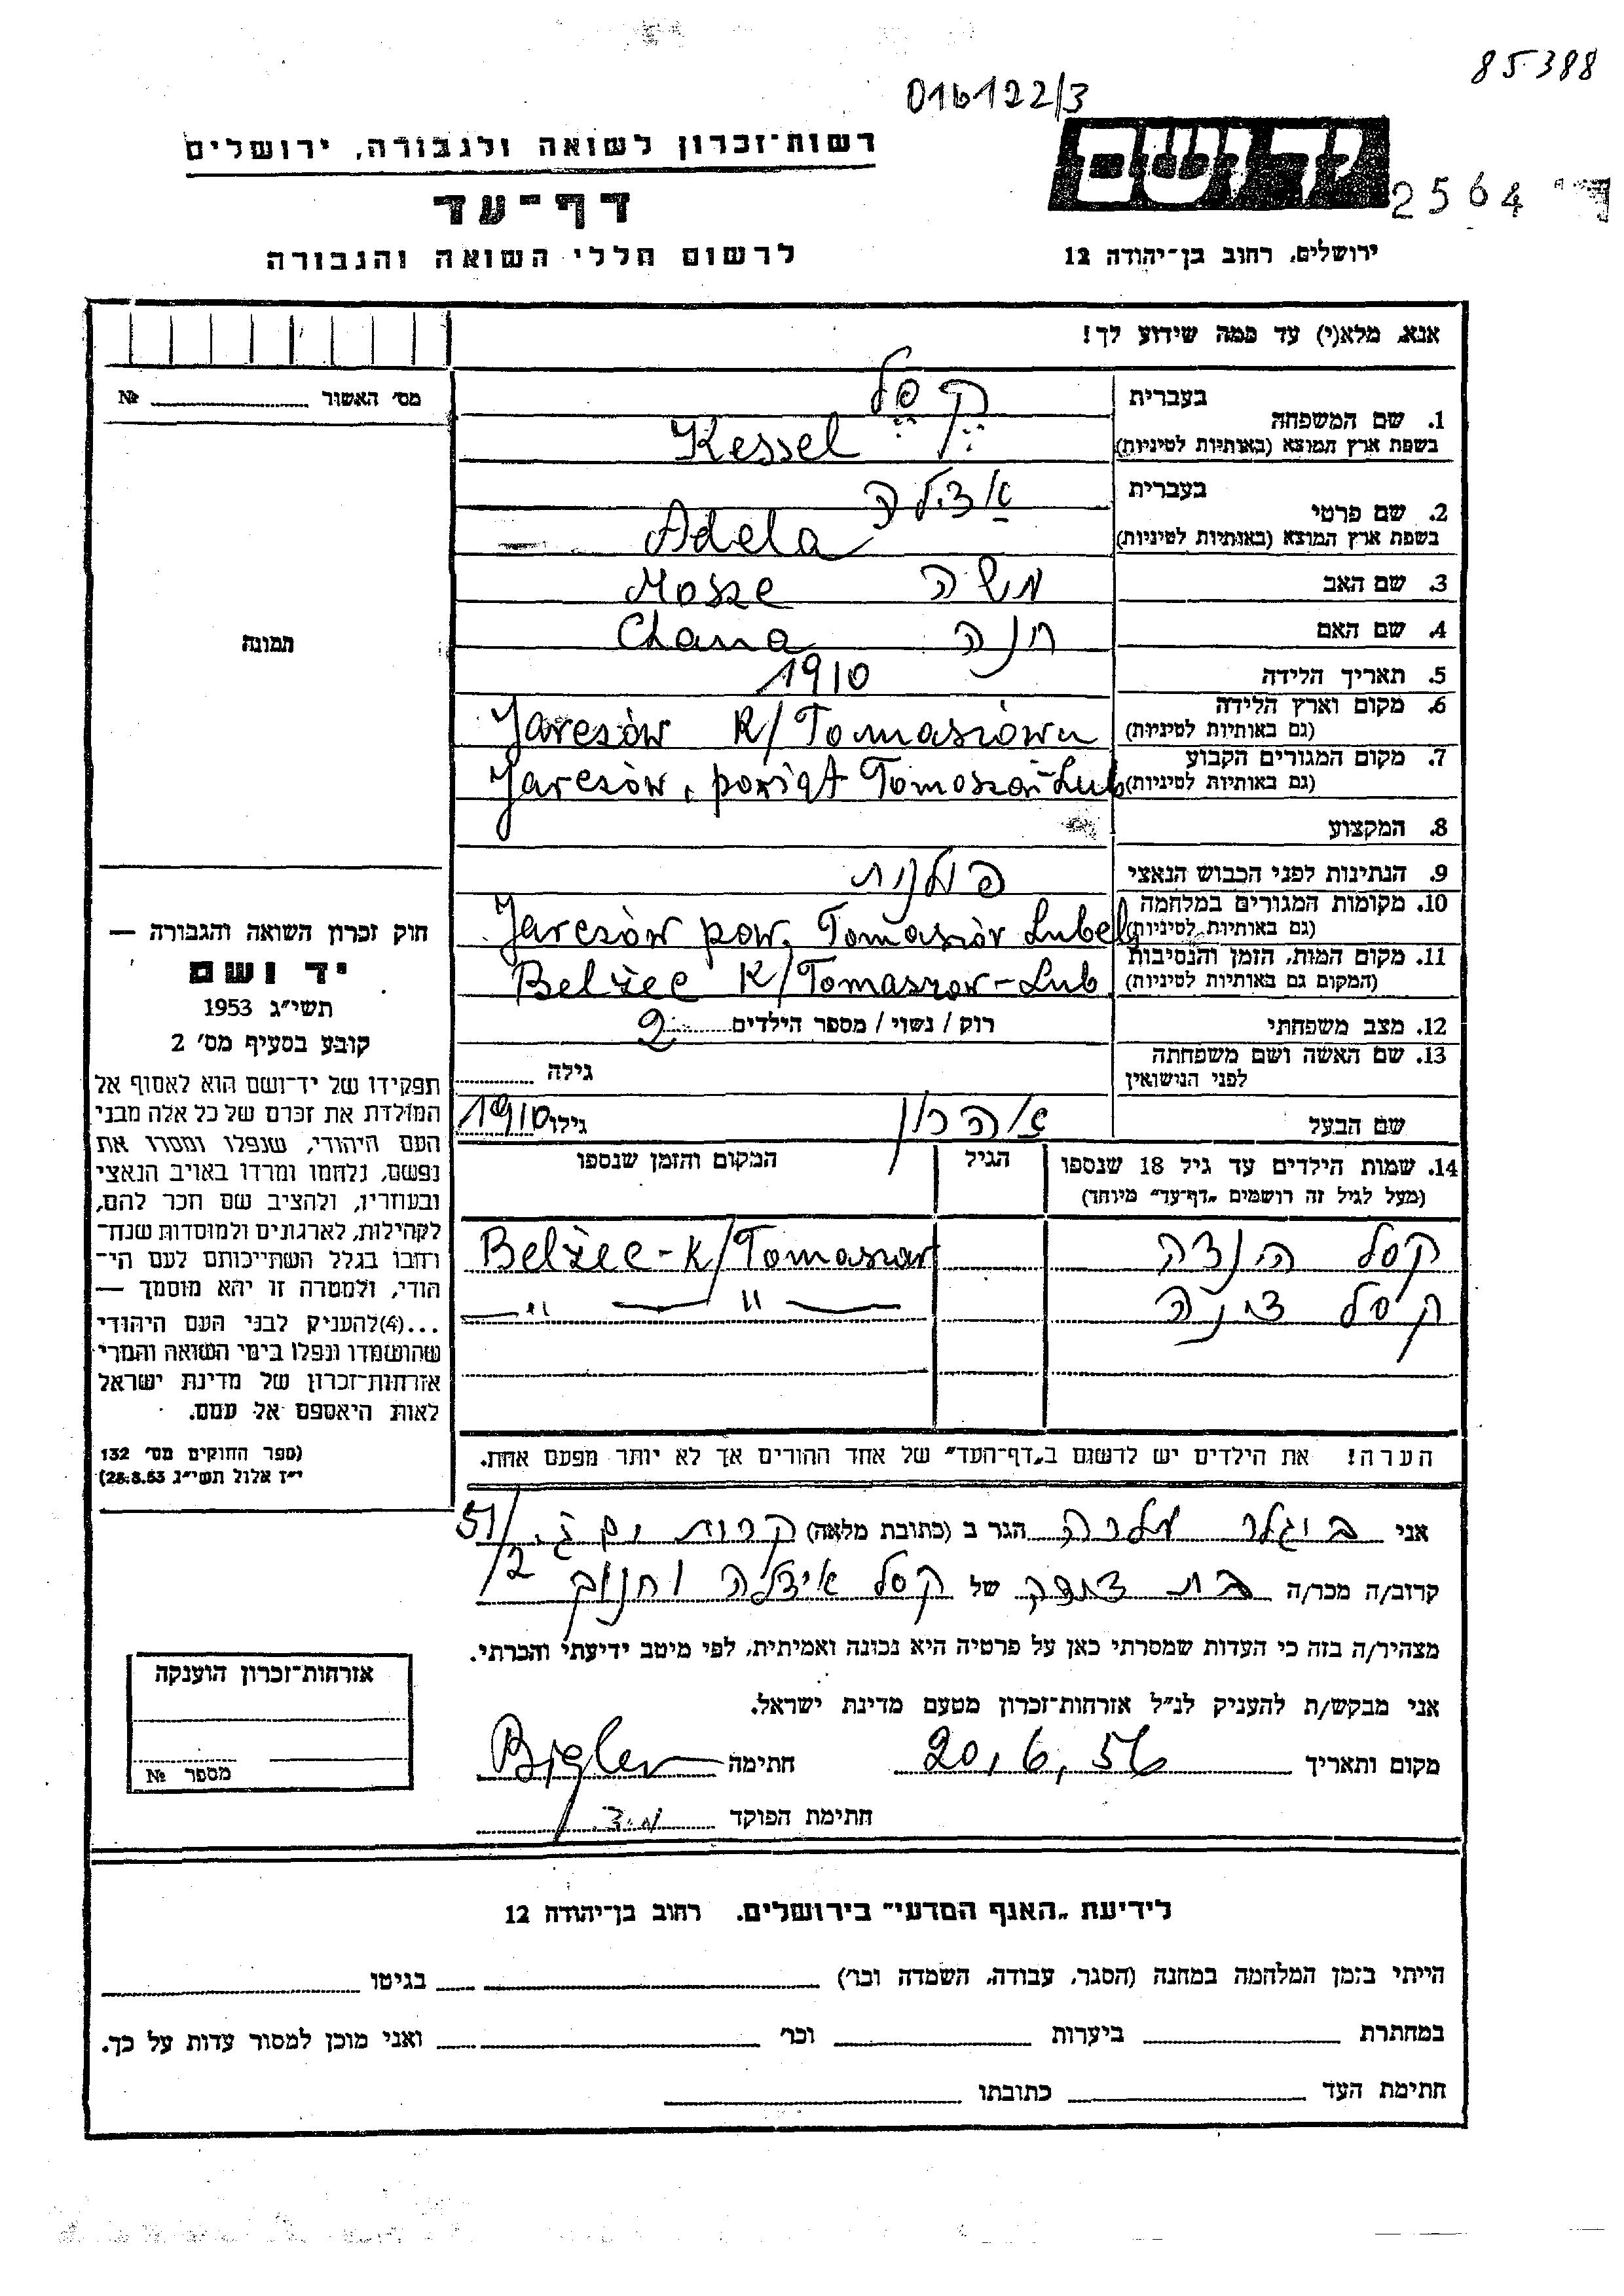 85388
016122/3
יד ושם
2564
רשות־זכרון לשואה ולגבורה, ירושלים
דף־עד
לרשום חללי השואה והגבורה
ירושלים, רחוב בן־יהודה 12
אנא, מלא(י) עד כמה שידוע לך!
מס׳ האשור № 
תמונה
1. שם המשפחה
בעברית קסל
בשפת ארץ המוצא (באותיות לטיניות) Kessel
2. שם פרטי
בעברית אדלה
בשפת ארץ המוצא (באותיות לטיניות) Adela
3. שם האב משה Mosze
4. שם האם חנה Chana
5. תאריך הלידה 1910
6. מקום וארץ הלידה
(גם באותיות לטיניות) Jarczów K/Tomaszówa
7. מקום המגורים הקבוע
(גם באותיות לטיניות) Jarczów, powiat Tomaszów-Lub
8. המקצוע
9. הנתינות לפני הכבוש הנאצי פולנית
10. מקומות המגורים במלחמה
(גם באותיות לטיניות) Jarczów pow. Tomaszów Lubel.
11. מקום המות, הזמן והנסיבות
(המקום גם באותיות לטיניות) Bełżec K/Tomaszow-Lub
12. מצב משפחתי רוק / נשוי / מספר הילדים 2
13. שם האשה ושם משפחתה
לפני הנישואין גילה
שם הבעל אהרון גילו 1910
14. שמות הילדים עד גיל 18 שנספו
(מעל לגיל זה רושמים „דף־עד״ מיוחד)
הגיל
המקום והזמן שנספו
קסל הנדה Bełżec-K/Tomaszow
קסל דינה — " — " —
הערה! את הילדים יש לרשום ב„דף־העד״ של אחד ההורים אך לא יותר מפעם אחת.
חוק זכרון השואה והגבורה —
יד ושם
תשי״ג 1953
קובע בסעיף מס׳ 2
תפקידו של יד־ושם הוא לאסוף אל
המולדת את זכרם של כל אלה מבני
העם היהודי, שנפלו ומסרו את
נפשם, נלחמו ומרדו באויב הנאצי
ובעוזריו, ולהציב שם וזכר להם,
לקהילות, לארגונים ולמוסדות שנח־
רחבו בגלל השתייכותם לעם הי־
הודי, ולמטרה זו יהא מוסמך —
...(4) להעניק לבני העם היהודי
שהושמדו ונפלו בימי השואה והמרי
אזרחות־זכרון של מדינת ישראל
לאות היאספם אל עמם.
(ספר החוקים מס׳ 132
י״ז אלול תשי״ג 28.8.53)
אני בוגלר הגר ב (כתובת מלאה) קרית ים ג. 51/2
קרוב/ה מכר/ה בת דודה של קסל אידלה וחנוך
מצהיר/ה בזה כי העדות שמסרתי כאן על פרטיה היא נכונה ואמיתית, לפי מיטב ידיעתי והכרתי.
אני מבקש/ת להעניק לנ״ל אזרחות־זכרון מטעם מדינת ישראל.
מקום ותאריך 20,6,56 חתימה Bigler
חתימת הפוקד
אזרחות־זכרון הוענקה
מספר №
לידיעת „האגף המדעי״ בירושלים. רחוב בן־יהודה 12
הייתי בזמן המלחמה במחנה (הסגר, עבודה, השמדה וכו׳) בגיטו
במחתרת ביערות וכו׳ ואני מוכן למסור עדות על כך.
חתימת העד כתובתו